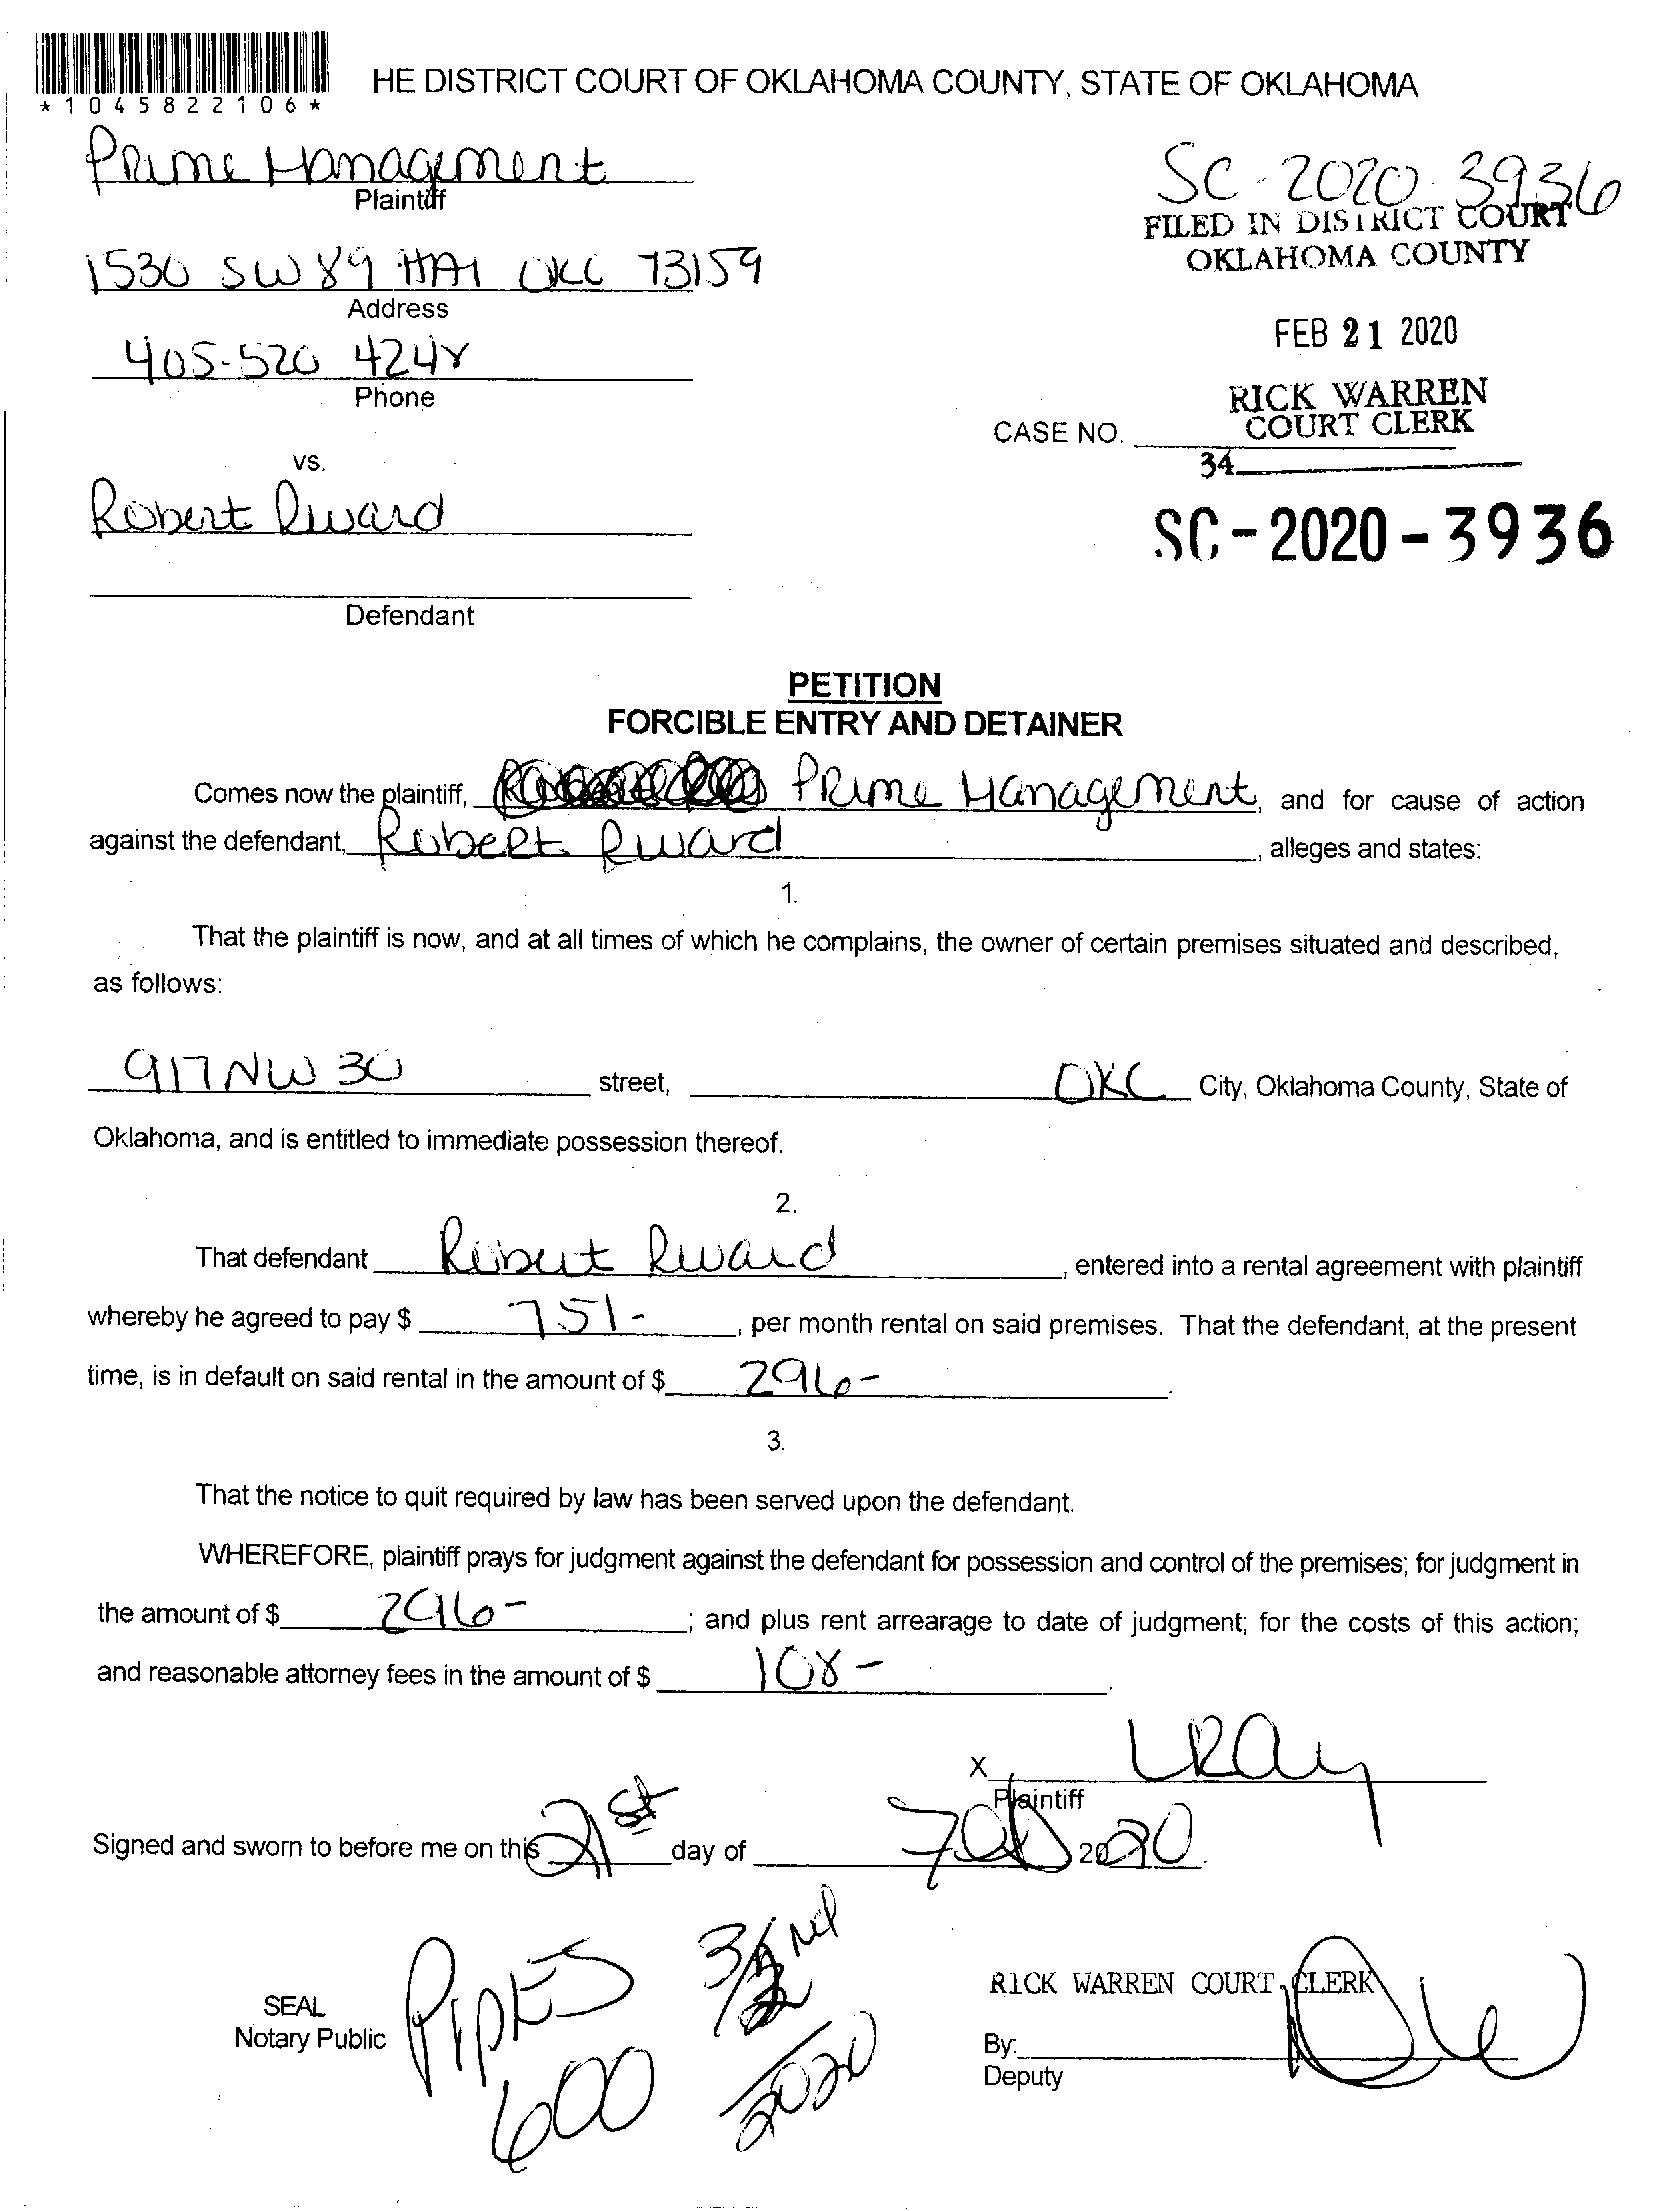 *1045822106*
HE DISTRICT COURT OF OKLAHOMA COUNTY, STATE OF OKLAHOMA
Prime Management
Plaintiff
SC-2020-3936
FILED IN DISTRICT COURT
OKLAHOMA COUNTY
1530 SW 89 #A1 OKC 73159
Address
FEB 21 2020
405-520 4248
Phone
RICK WARREN
COURT CLERK
CASE NO.
34
vs.
Robert Rward
SC-2020-3936
Defendant
PETITION
FORCIBLE ENTRY AND DETAINER
Comes now the plaintiff, Prime Management, and for cause of action
against the defendant, Robert Rward, alleges and states:
1.
That the plaintiff is now, and at all times of which he complains, the owner of certain premises situated and described,
as follows:
917 NW 30 street, OKC City, Oklahoma County, State of
Oklahoma, and is entitled to immediate possession thereof.
2.
That defendant Robert Rward, entered into a rental agreement with plaintiff
whereby he agreed to pay $ 751-, per month rental on said premises. That the defendant, at the present
time, is in default on said rental in the amount of $ 296-.
3.
That the notice to quit required by law has been served upon the defendant.
WHEREFORE, plaintiff prays for judgment against the defendant for possession and control of the premises; for judgment in
the amount of $ 296-; and plus rent arrearage to date of judgment; for the costs of this action;
and reasonable attorney fees in the amount of $ 108-.
X LRay
Plaintiff
Signed and sworn to before me on this 21st day of Feb 2020.
SEAL
Notary Public
Pipes
600
2020
RICK WARREN COURT CLERK
By:
Deputy